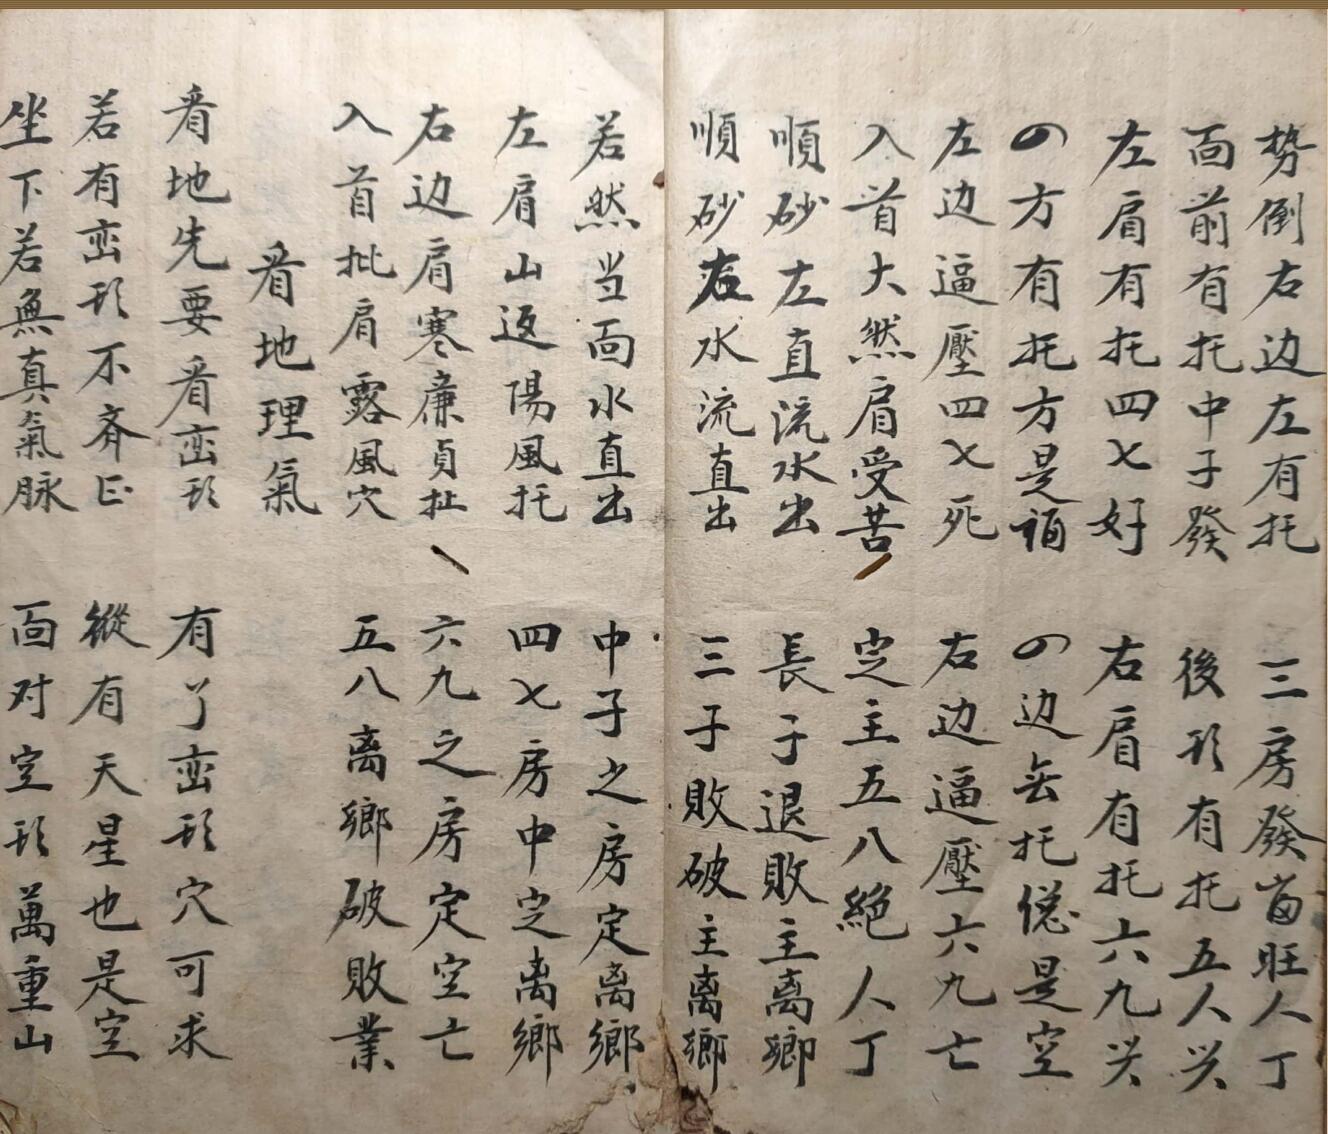 势倒右边左有托 三房發畐旺人丁
面前有托中子發 後形有托五人兴
左肩有托四七好 右肩有托六九兴
四方有托方是福 四边無托总是空
左边逼壓四七死 右边逼壓六九亡
入首大煞肩受苦 定主五八絕人丁
順砂左直流水出 長子退敗主离鄉
順砂右水流直出 三子敗破主离鄉
若然当面水直出 中子之房定离鄉
左肩山返陽風托 四七房中定离鄉
右边肩寒廉貞扯 六九之房定空亡
入首批肩露風穴 五八离鄉破敗業
看地理氣
看地先要看峦形 有了峦形穴可求
若有峦形不斉正 縱有天星也是空
坐下若無真氣脉 面对空形萬重山